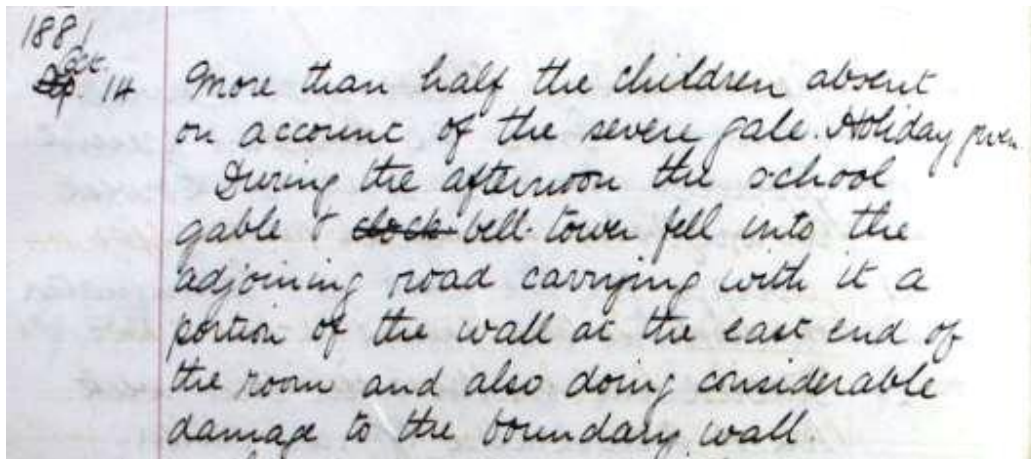 1881
Oct.
Sep. 14 More than half the children absent
on account of the severe gale. Holiday given
During the afternoon the school
gable & clock bell-tower fell into the
adjoining road carrying with it a
portion of the wall at the east end of
the room and also doing considerable
damage to the boundary wall